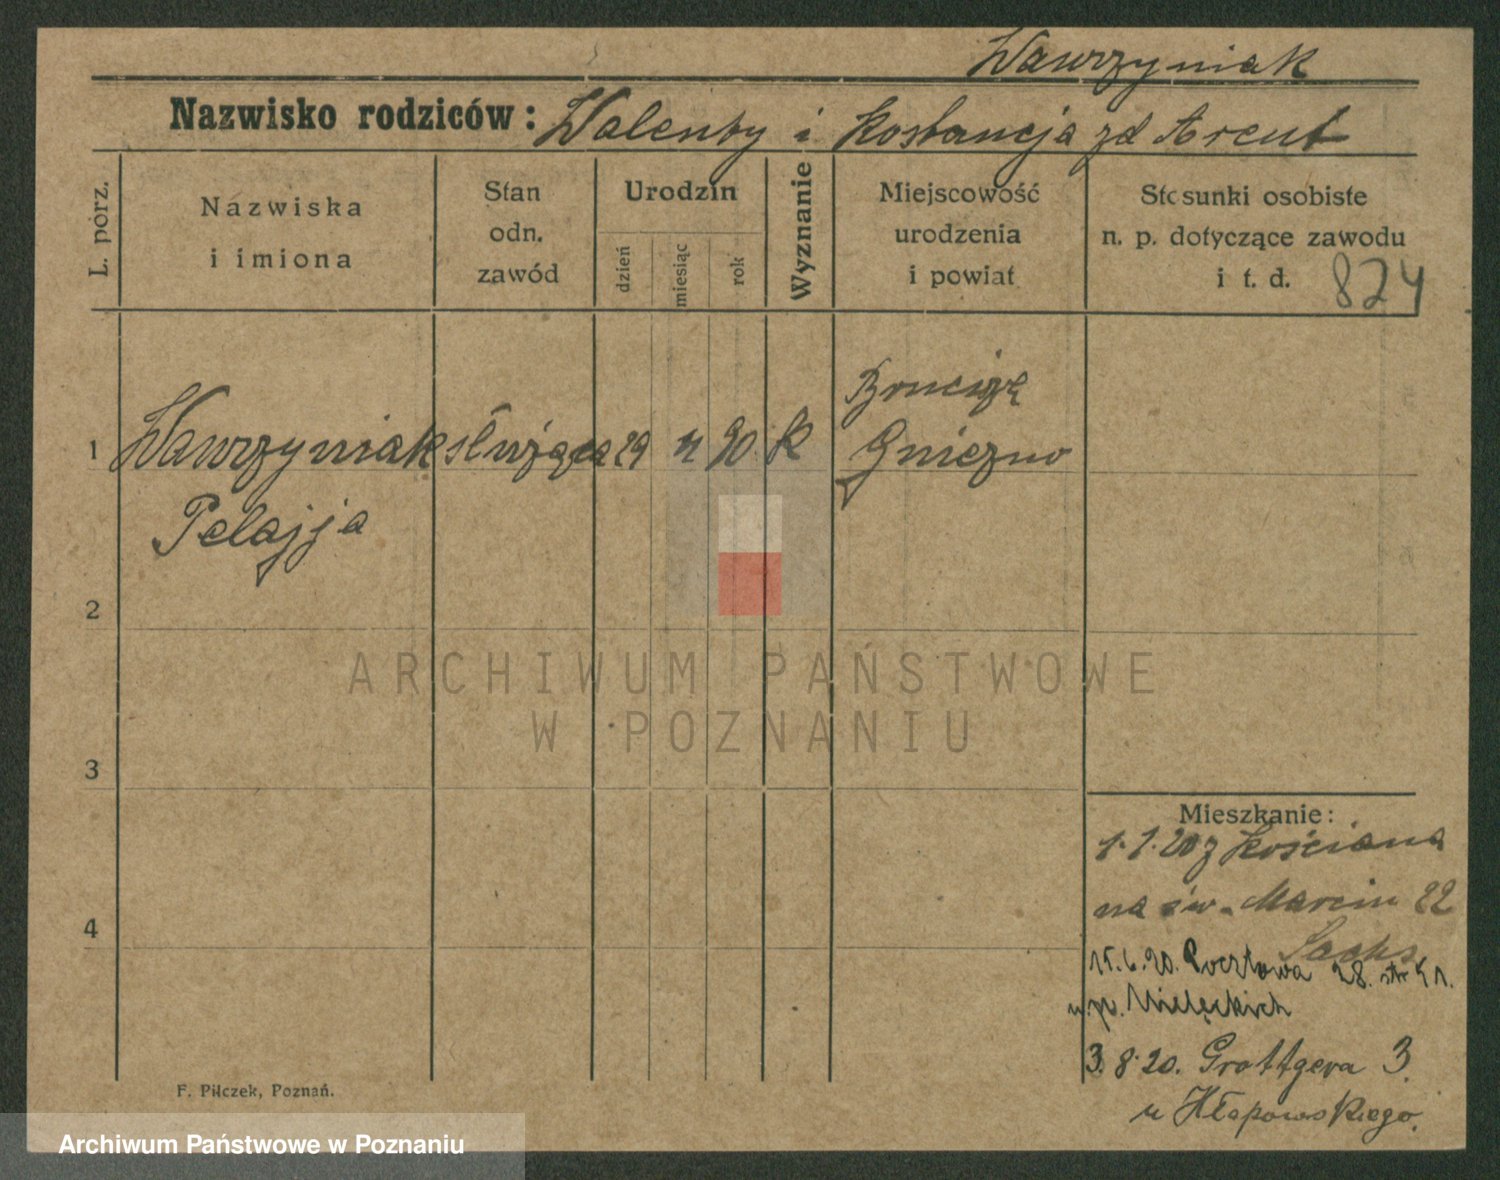 Wawrzyniak
Nazwisko rodziców: Walenty i Kostancja zd Arent
L. porz.
Nazwiska
i imiona
Stan
odn.
zawód
Urodzin
dzień
miesiąc
rok
Wyznanie
Miejscowość
urodzenia
i powiat
Stosunki osobiste
n. p. dotyczące zawodu
i t. d.
824
1 Wawrzyniak służąca 29 90 k
Gniezno
Pelajja
2
ARCHIWUM PAŃSTWOWE
W POZNANIU
3
4
Mieszkanie:
1.1.20 z Kościana
na św. Marcin 22
Sachs
15.6.20. Pocztowa 28. str
u. p. Mielęckich
3.8.20. Grottgera 3.
u Hłapowskiego.
F. Pilczek, Poznań.
Archiwum Państwowe w Poznaniu